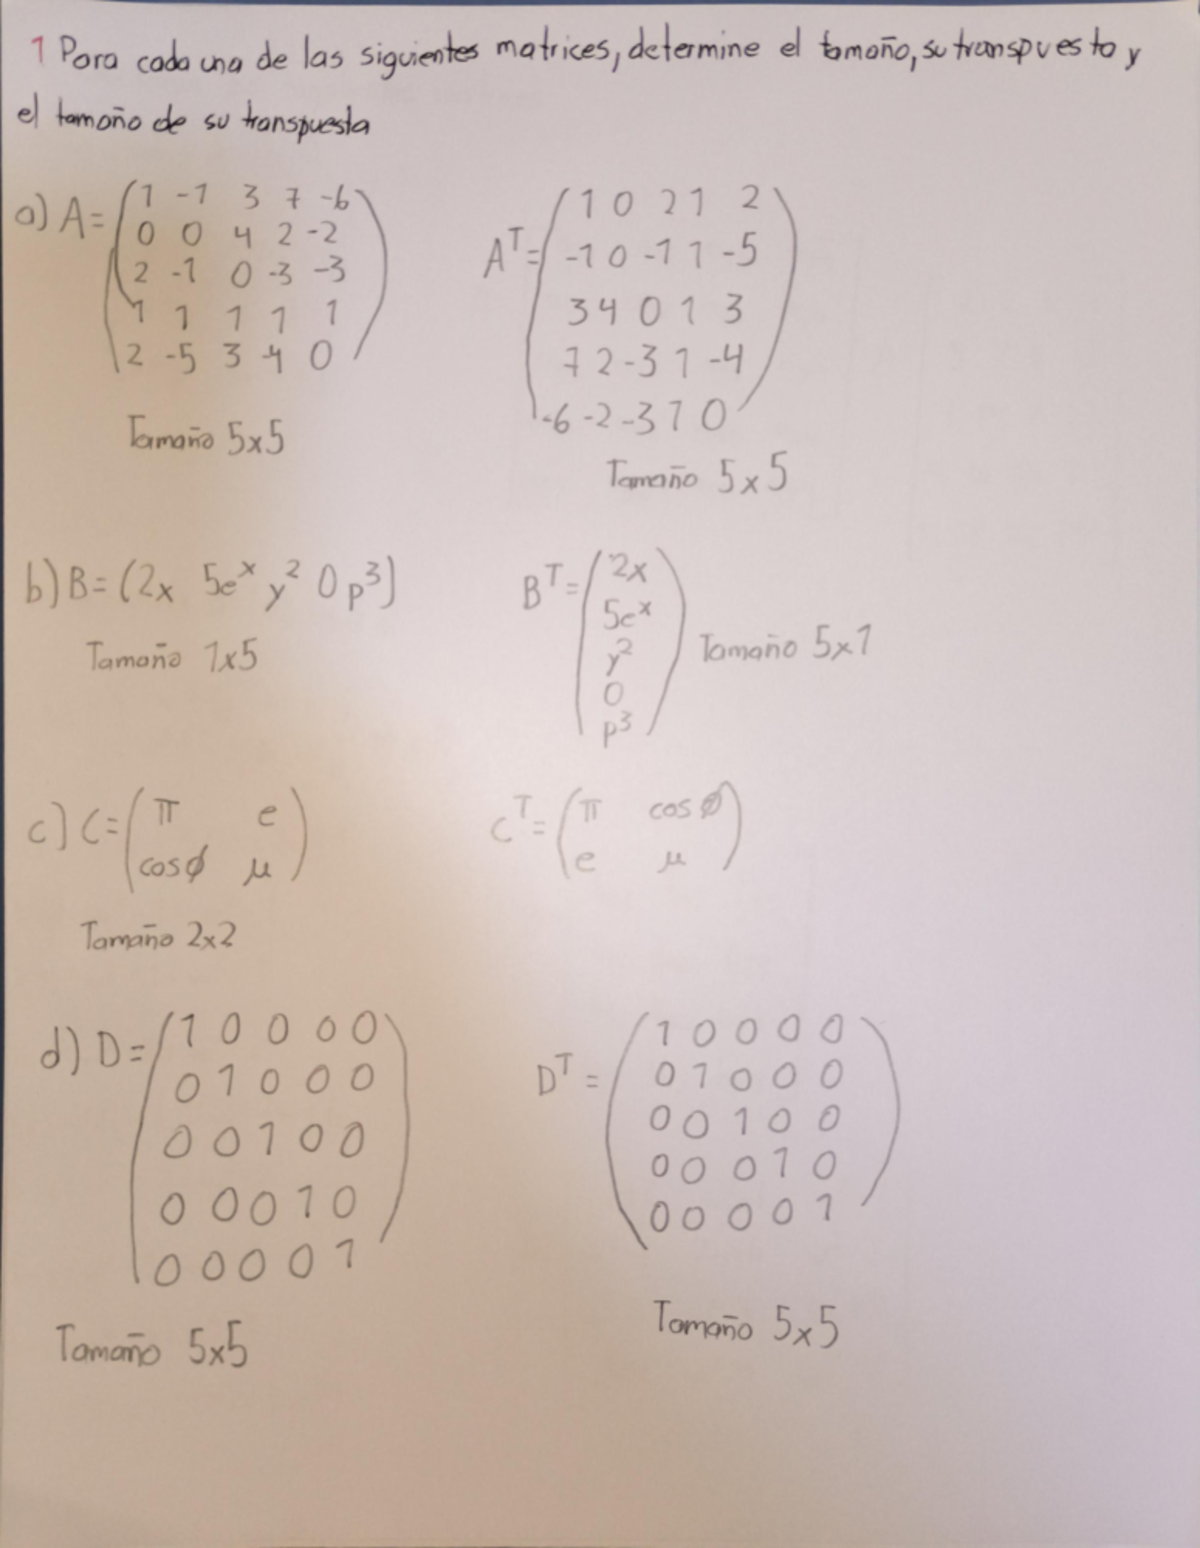 1 Para cada una de las siguientes matrices, determine el tamaño, su transpuesta y
el tamaño de su transpuesta
a) A = (1 -1 3 7 -6
0 0 4 2 -2
2 -1 0 -3 -3
1 1 1 1 1
2 -5 3 -4 0)
Tamaño 5x5
A^T = (1 0 2 1 2
-1 0 -1 1 -5
3 4 0 1 3
7 2 -3 1 -4
-6 -2 -3 1 0)
Tamaño 5x5
b) B = (2x 5e^x y^2 0 p^3)
Tamaño 1x5
B^T = (2x
5e^x
y^2
0
p^3)
Tamaño 5x1
c) C = (π e
cosϕ μ)
Tamaño 2x2
C^T = (π cosϕ
e μ)
d) D = (1 0 0 0 0
0 1 0 0 0
0 0 1 0 0
0 0 0 1 0
0 0 0 0 1)
Tamaño 5x5
D^T = (1 0 0 0 0
0 1 0 0 0
0 0 1 0 0
0 0 0 1 0
0 0 0 0 1)
Tamaño 5x5